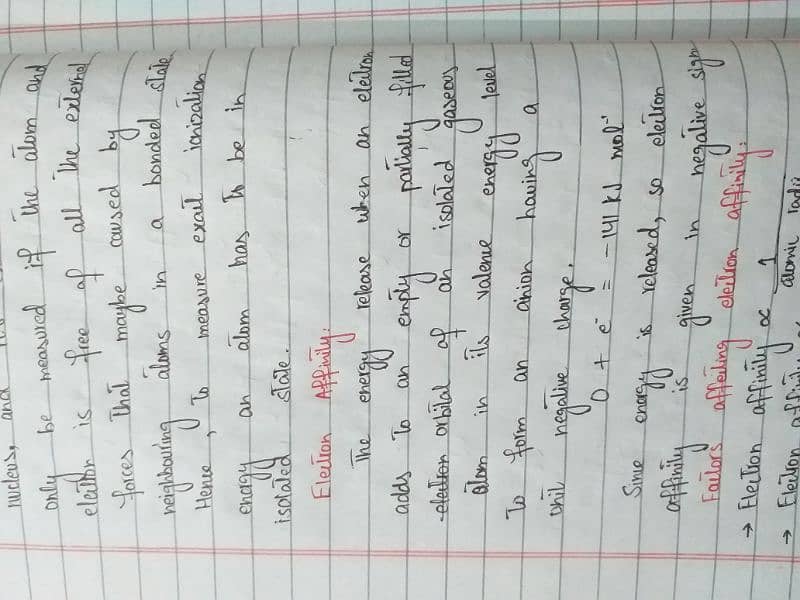 nucleus, and
only be measured if the atom and
electron is free of all the external
forces that maybe caused by
neighbouring atoms in a bonded state.
Hence, to measure exact ionization
energy an atom has to be in
isolated state.
Electron Affinity:
The energy release when an electron
adds to an empty or partially filled
electron orbital of an isolated gaseous
atom in its valence energy level
to form an anion having a
unit negative charge.
O + e⁻ = -141 kJ mol⁻¹
Since energy is released, so electron
affinity is given in negative sign
Factors affecting electron affinity:
→ Electron affinity ∝ 1 / atomic radii
→ Electron affinity ∝